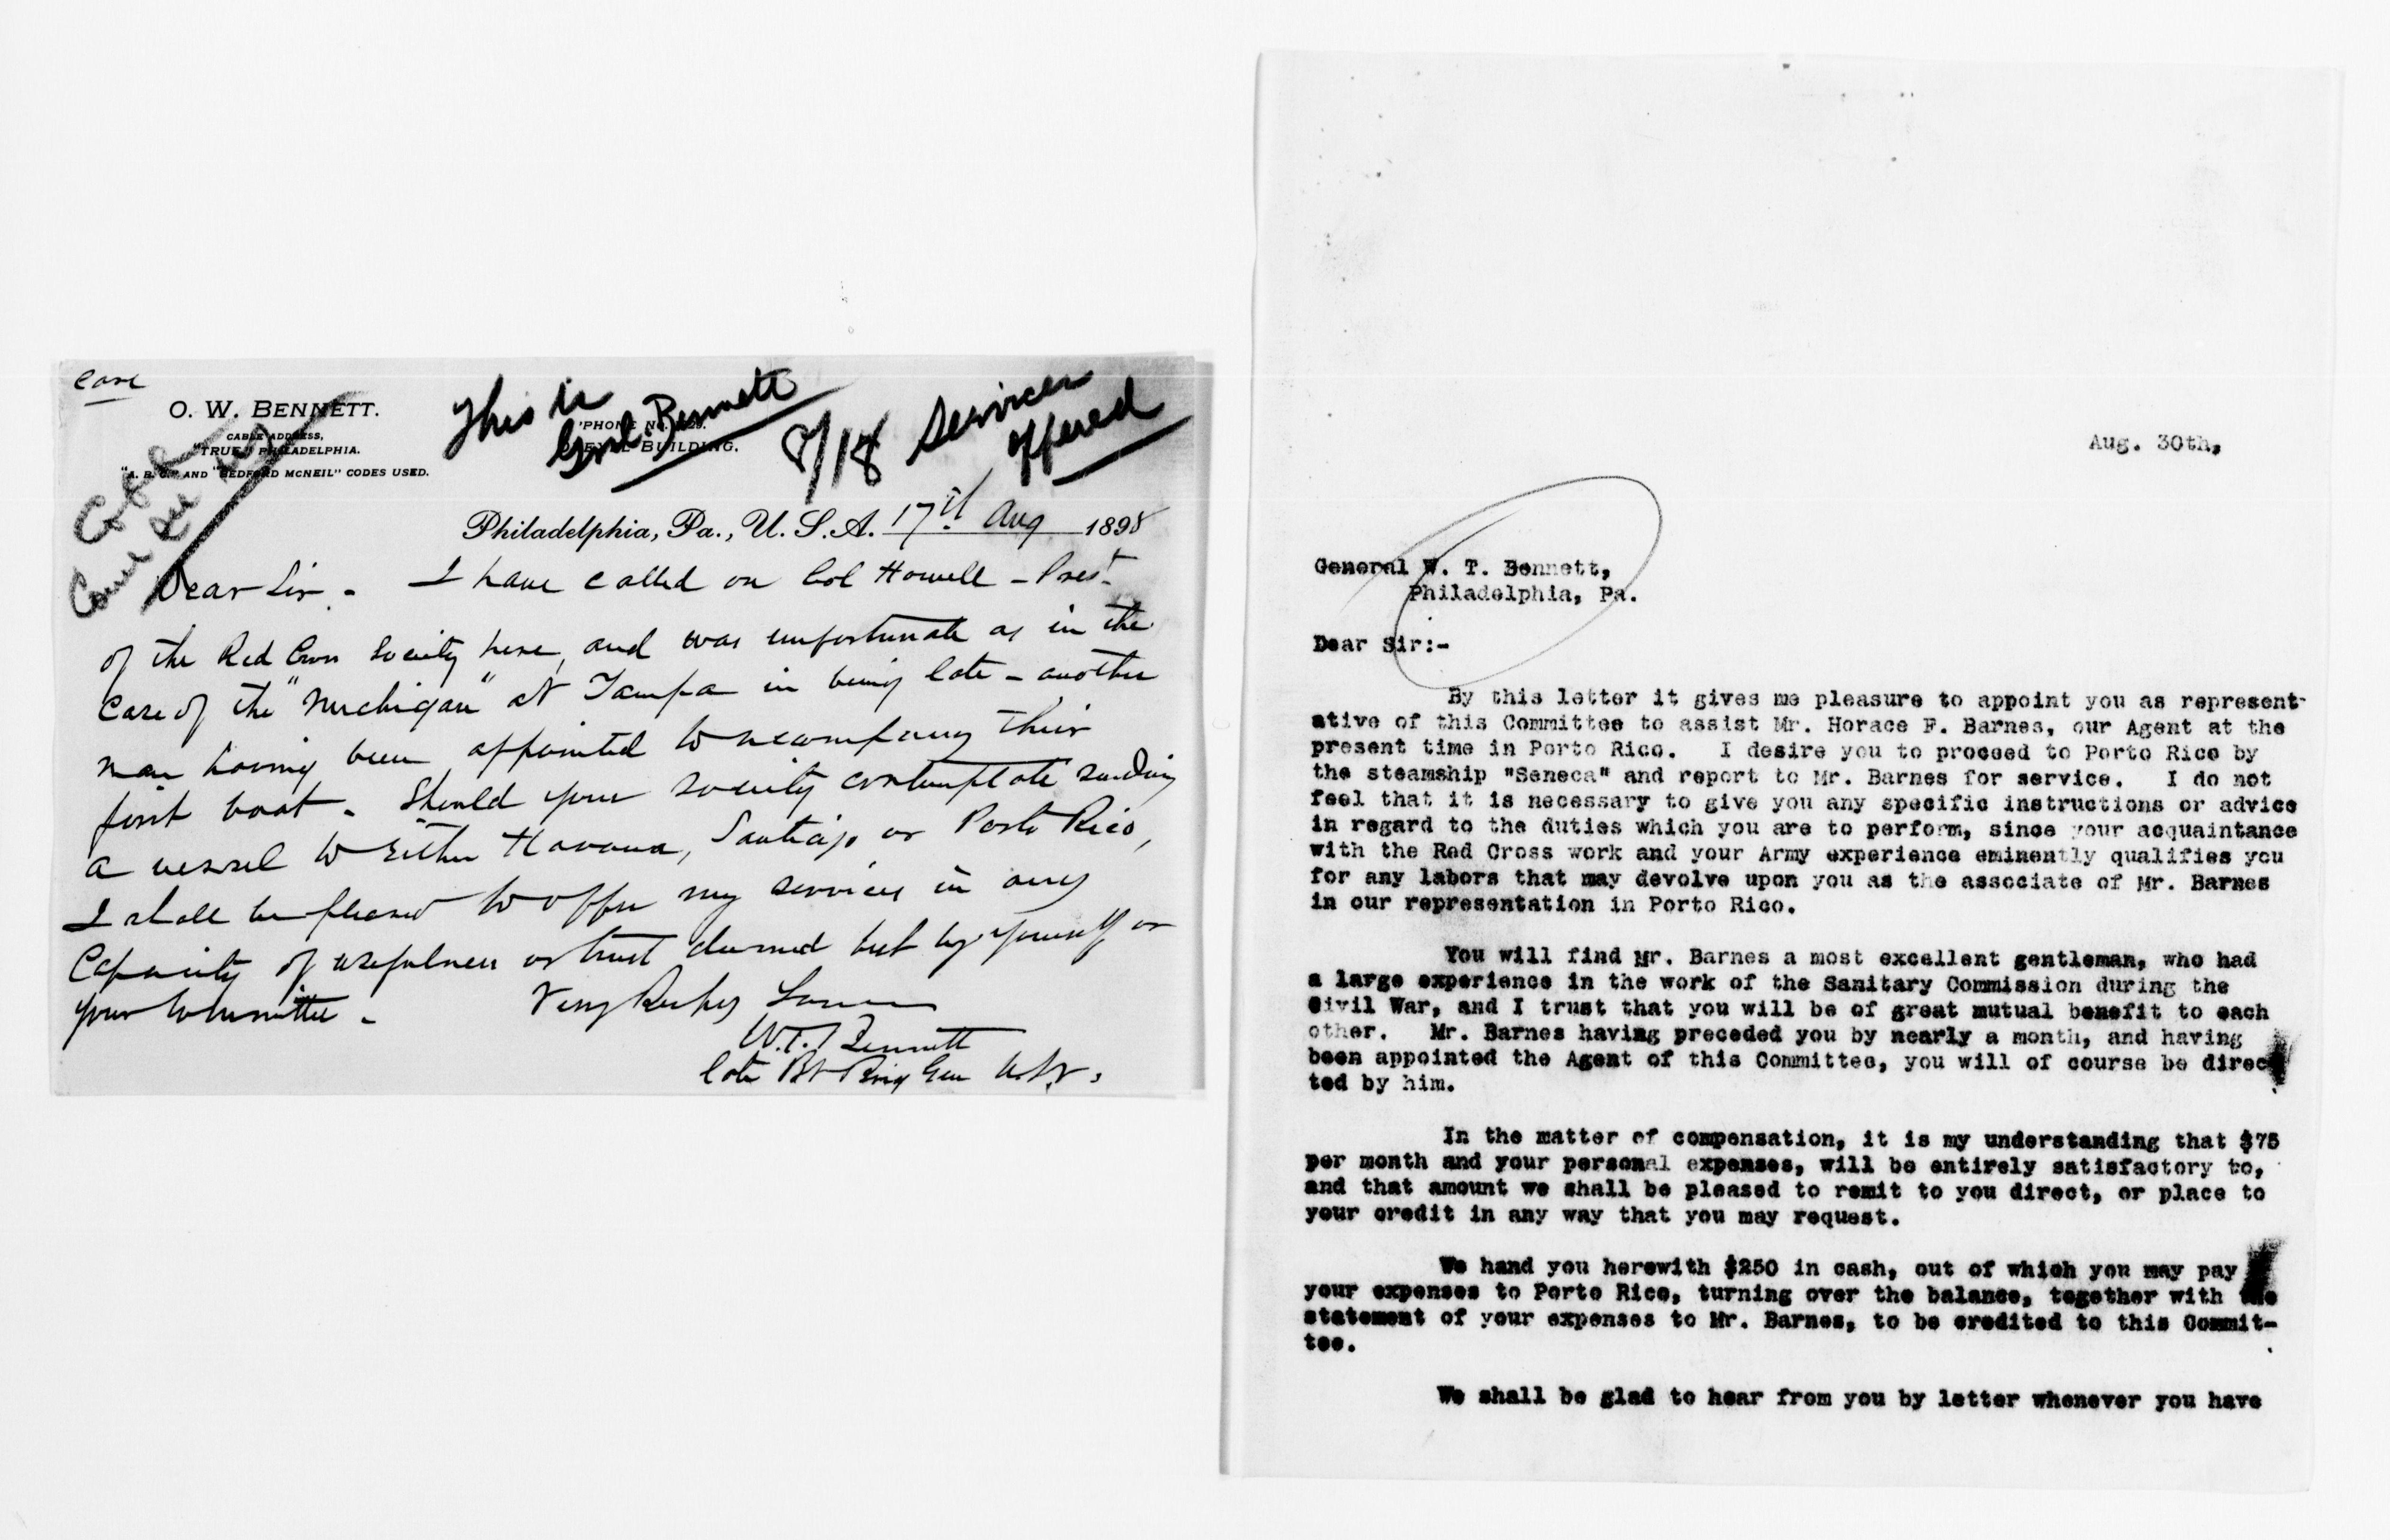 Case
O. W. BENNETT.
CABLE ADDRESS,
"TRUE," PHILADELPHIA.
"A. B. C." AND "BEDFORD MCNEIL" CODES USED.
This is
Genl. Bennett
'PHONE NO.
BUILDING.
8/18 Services
offered
Philadelphia, Pa., U. S. A. 17th Aug 1898
Dear Sir. - I have called on Col Howell - Prest.
of the Red Cross Society here, and was unfortunate as in the
case of the "Michigan" at Tampa in being late - another
man having been appointed to accompany their
first boat. Should your society contemplate sending
a vessel to either Havana, Santiago or Porto Rico,
I shall be pleased to offer my services in any
Capacity of usefulness or trust deemed best by yourself or
your Committee -
Very Respy Yours
W. T. Bennett
late Bt Brig Gen U.S.V.
Aug. 30th,
General W. T. Bennett,
Philadelphia, Pa.
Dear Sir:-
By this letter it gives me pleasure to appoint you as represent-
ative of this Committee to assist Mr. Horace F. Barnes, our Agent at the
present time in Porto Rico. I desire you to proceed to Porto Rico by
the steamship "Seneca" and report to Mr. Barnes for service. I do not
feel that it is necessary to give you any specific instructions or advice
in regard to the duties which you are to perform, since your acquaintance
with the Red Cross work and your Army experience eminently qualifies you
for any labors that may devolve upon you as the associate of Mr. Barnes
in our representation in Porto Rico.
You will find Mr. Barnes a most excellent gentleman, who had
a large experience in the work of the Sanitary Commission during the
Civil War, and I trust that you will be of great mutual benefit to each
other. Mr. Barnes having preceded you by nearly a month, and having
been appointed the Agent of this Committee, you will of course be direc
ted by him.
In the matter of compensation, it is my understanding that $75
per month and your personal expenses, will be entirely satisfactory to,
and that amount we shall be pleased to remit to you direct, or place to
your credit in any way that you may request.
We hand you herewith $250 in cash, out of which you may pay
your expenses to Porto Rico, turning over the balance, together with the
statement of your expenses to Mr. Barnes, to be credited to this Commit-
tee.
We shall be glad to hear from you by letter whenever you have